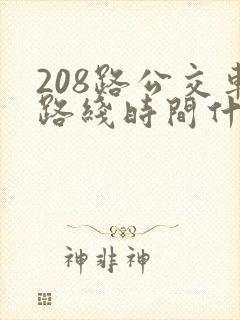 208路公交車
路綫時間什
神非神